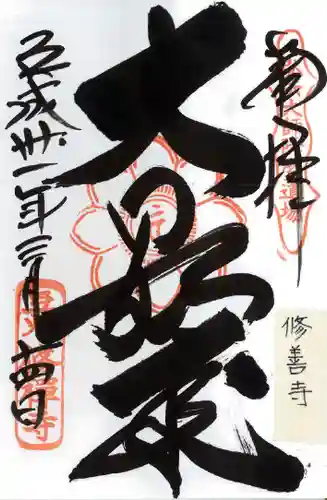 奉拝
大日如来
平成卅一年三月廿四日
修善寺